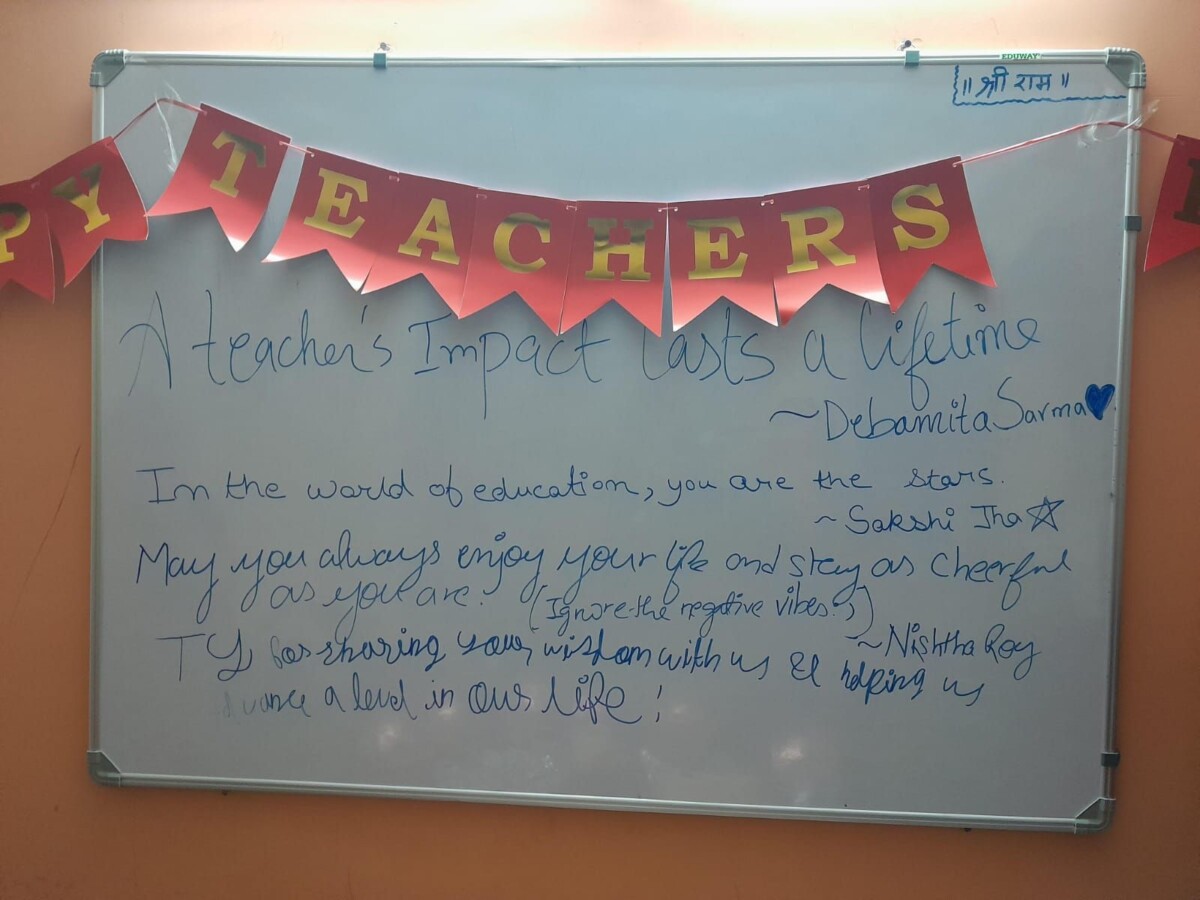 EDUWAY
॥ श्री राम ॥
PY TEACHERS
A teacher's Impact lasts a lifetime
~Debamita Sarma
In the world of education, you are the stars.
~Sakshi Jha
May you always enjoy your life and stay as cheerful
as you are. (Ignore the negative vibes:))
~Nishtha Roy
TY for sharing your wisdom with us & helping us
advance a level in our life!